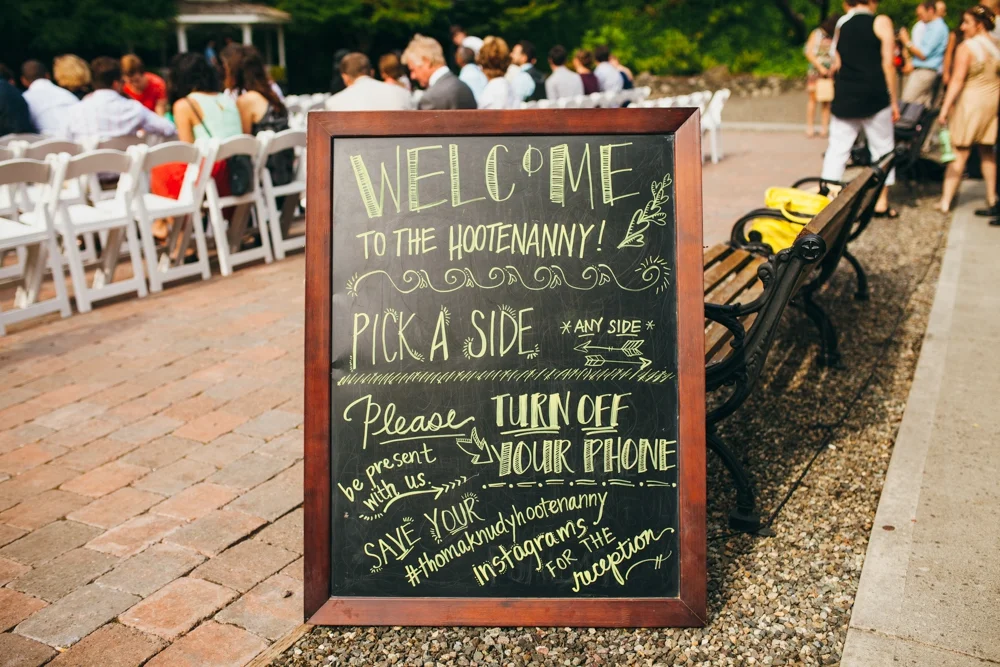 WELCOME
TO THE HOOTENANNY!
PICK A SIDE
*ANY SIDE*
Please
TURN OFF
YOUR PHONE
be present
with us
SAVE YOUR
#thomaknudyhootenanny
instagrams
FOR THE
reception